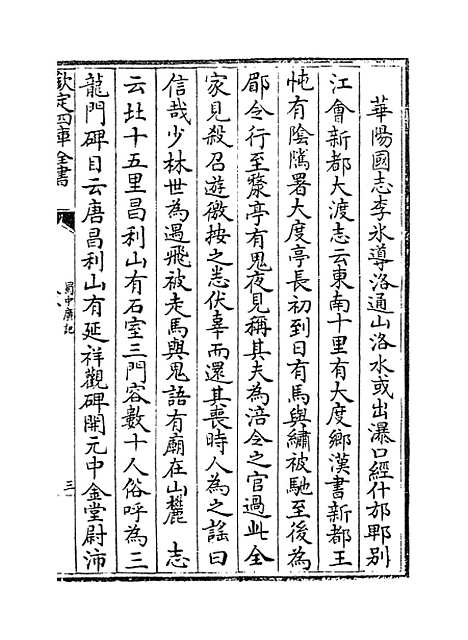 華陽國志李氷導洛通山洛水或出瀑口經什邡郫别
江會新都大渡志云東南十里有大度鄉漢書新都王
忳有陰隲署大度亭長初到日有馬與繡被馳至後為
郿令行至斄亭有鬼夜見稱其夫為涪令之官過此全
家見殺召遊徼按之悉伏辜而還其喪時人為之謡曰
信哉少林世為遇飛被走馬與鬼語有廟在山麓　志
云北十五里昌利山有石室三門容數十人俗呼為三
龍門碑目云唐昌利山有延祥觀碑開元中金堂尉沛
欽定四庫全書
蜀中廣記
三